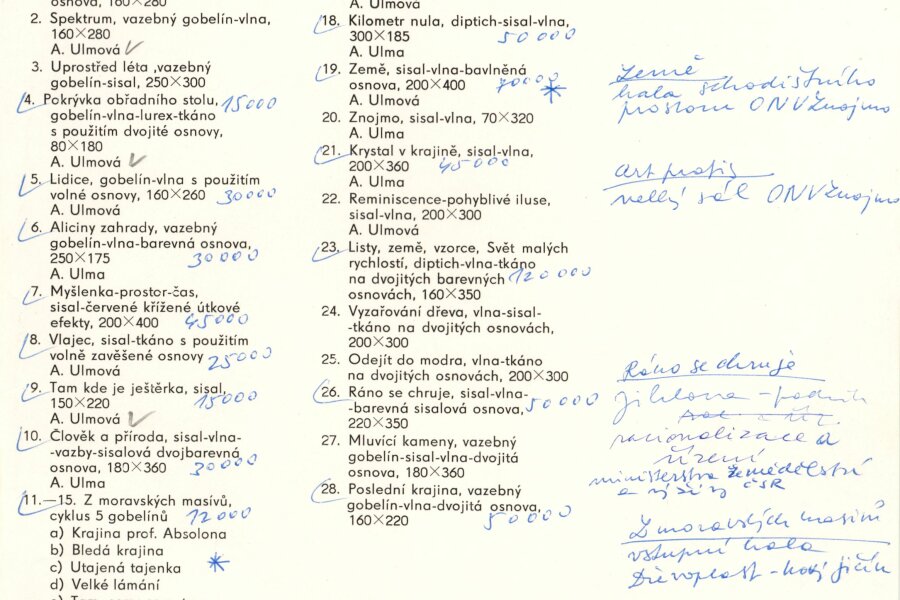 osnova, 160×280
2. Spektrum, vazebný gobelín-vlna,
160×280
A. Ulmová
3. Uprostřed léta ,vazebný
gobelín-sisal, 250×300
4. Pokrývka obřadního stolu, 15000
gobelín-vlna-lurex-tkáno
s použitím dvojité osnovy,
80×180
A. Ulmová
5. Lidice, gobelín-vlna s použitím
volné osnovy, 160×260 30000
A. Ulmová
6. Aliciny zahrady, vazebný
gobelín-vlna-barevná osnova,
250×175 30000
A. Ulma
7. Myšlenka-prostor-čas,
sisal-červené křížené útkové
efekty, 200×400 45000
8. Vlajec, sisal-tkáno s použitím
volně zavěšené osnovy 25000
A. Ulmová
9. Tam kde je ještěrka, sisal,
150×220 15000
A. Ulmová
10. Člověk a příroda, sisal-vlna-
-vazby-sisalová dvojbarevná
osnova, 180×360 30000
A. Ulma
11.—15. Z moravských masívů,
cyklus 5 gobelínů 12000
a) Krajina prof. Absolona
b) Bledá krajina
c) Utajená tajenka *
d) Velké lámání
A. Ulmová
18. Kilometr nula, diptich-sisal-vlna,
300×185 50000
A. Ulma
19. Země, sisal-vlna-bavlněná
osnova, 200×400 70000 *
A. Ulmová
20. Znojmo, sisal-vlna, 70×320
A. Ulma
21. Krystal v krajině, sisal-vlna,
200×360 45000
A. Ulma
22. Reminiscence-pohyblivé iluse,
sisal-vlna, 200×300
A. Ulmová
23. Listy, země, vzorce, Svět malých
rychlostí, diptich-vlna-tkáno
na dvojitých barevných 120000
osnovách, 160×350
24. Vyzařování dřeva, vlna-sisal-
-tkáno na dvojitých osnovách,
200×300
25. Odejít do modra, vlna-tkáno
na dvojitých osnovách, 200×300
26. Ráno se chruje, sisal-vlna-
-barevná sisalová osnova, 50000
220×350
27. Mluvící kameny, vazebný
gobelín-sisal-vlna-dvojitá
osnova, 180×360
28. Poslední krajina, vazebný
gobelín-vlna-dvojitá osnova,
160×220 50000
Země
hala schodištního
prostoru ONV Znojmo
Art protis
velký sál ONV Znojmo
Ráno se chruje
Jihlava - podnik
racionalizace a
řízení
ministerstva zemědělství
a výživy ČSR
Z moravských masivů
vstupní hala
Dřevoplast - Nový Jičín